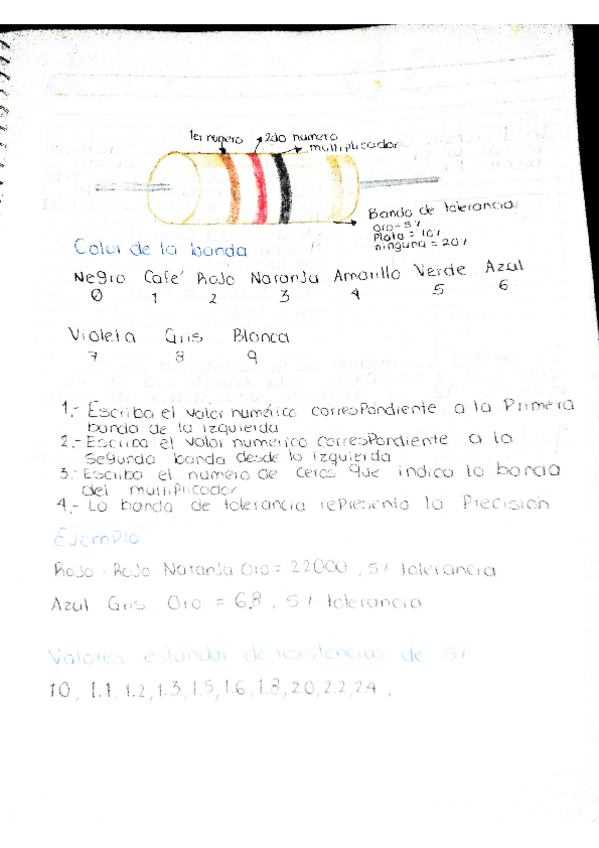 1er numero 2do numero
multiplicador
Banda de tolerancia
oro=5%
Plata = 10%
ninguna = 20%
Color de la banda
Negro Café Rojo Naranja Amarillo Verde Azul
0 1 2 3 4 5 6
Violeta Gris Blanca
7 8 9
1.- Escriba el valor numérico correspondiente a la Primera
banda de la izquierda
2.- Escriba el valor numerico correspondiente a la
Segunda banda desde la izquierda
3.- Escriba el numero de ceros que indica la banda
del multiplicador
4.- La banda de tolerancia representa la Precisión
Ejemplo
Rojo - Rojo Naranja Oro = 22000 , 5% tolerancia
Azul Gris Oro = 6.8 , 5% tolerancia
Valores estandar de resistencias de 5%
1.0, 1.1, 1.2, 1.3, 1.5, 1.6, 1.8, 2.0, 2.2, 2.4 ,